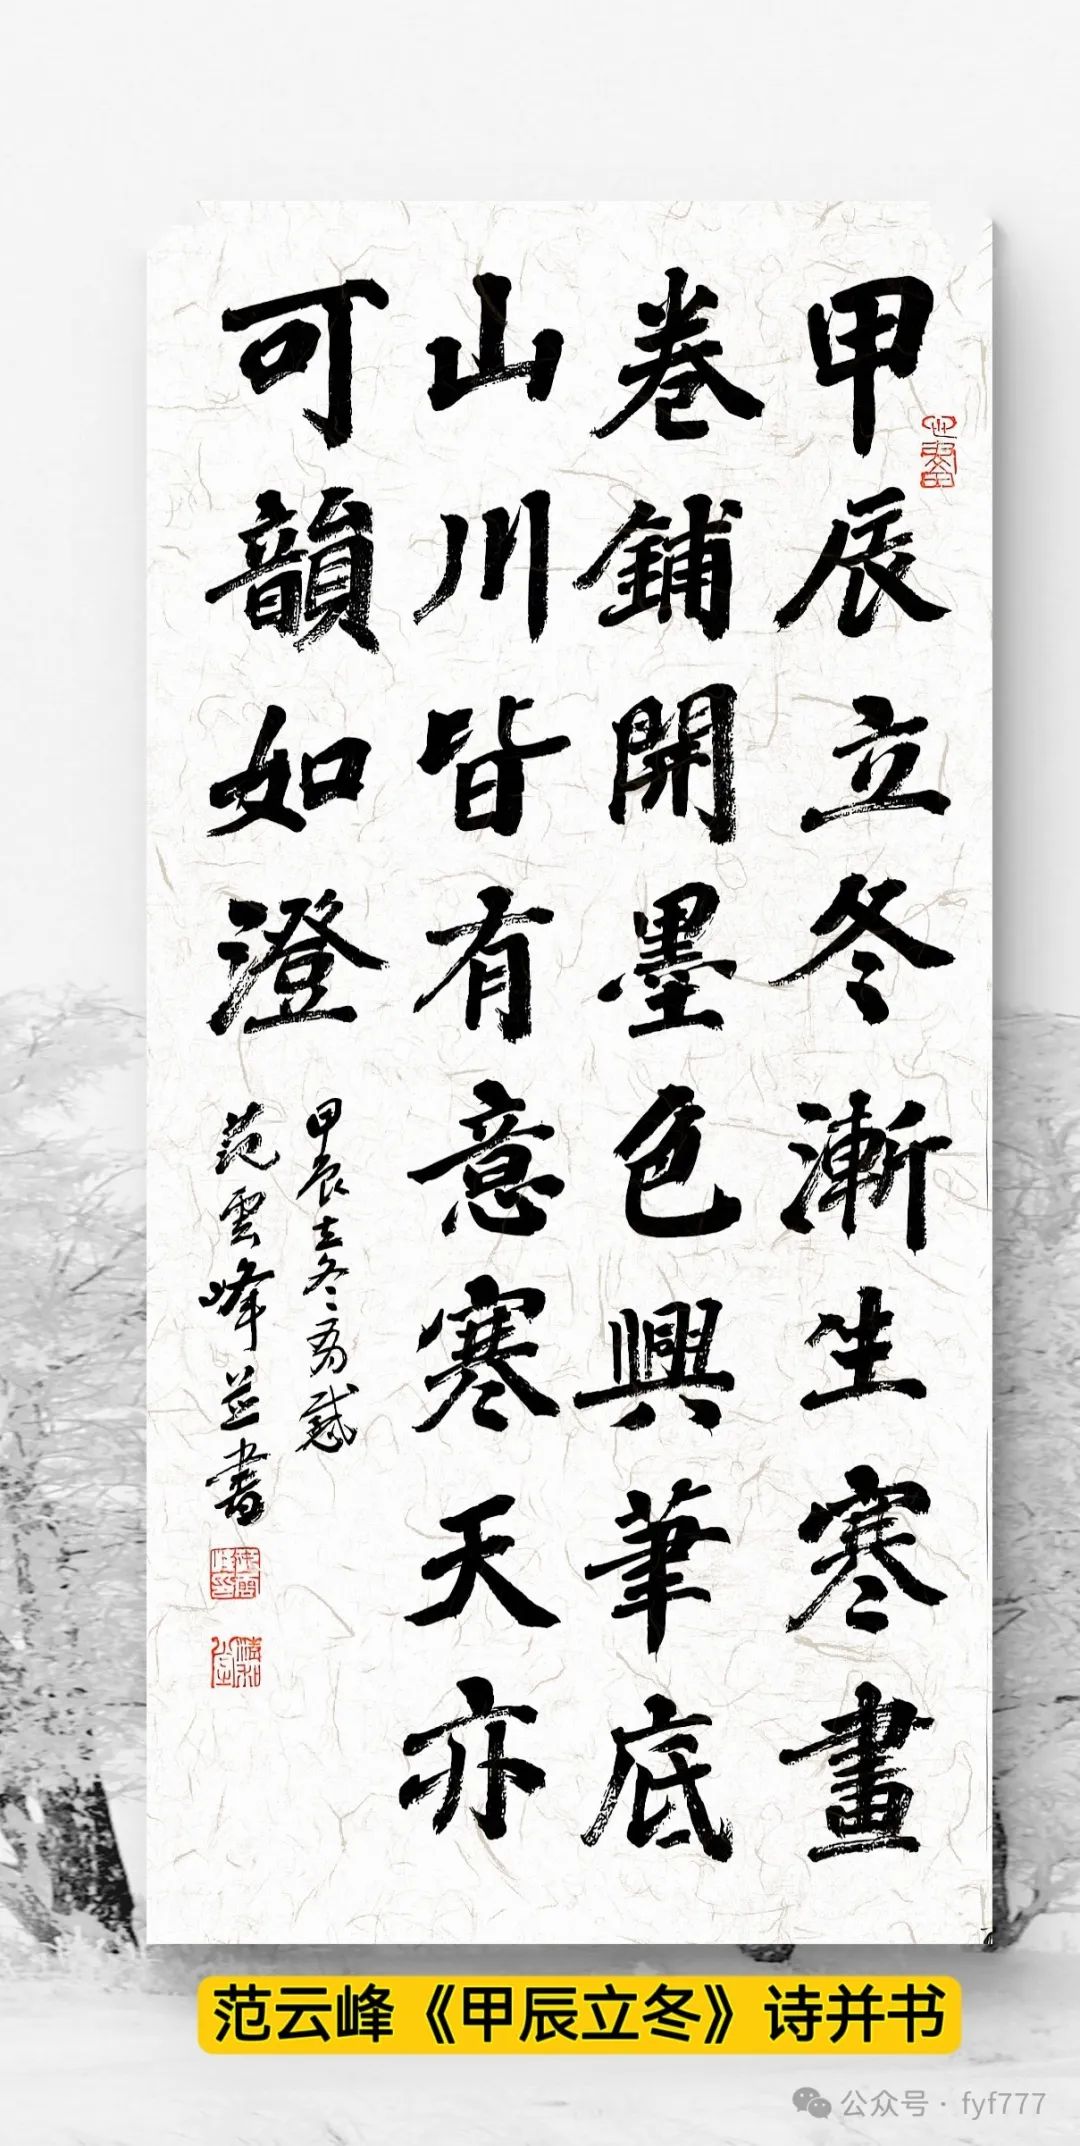 甲辰立冬漸生寒畫
卷鋪開墨色興筆底
山川皆有意寒天亦
可韻如澄
甲辰立冬有感
范雲峰並書
范云峰《甲辰立冬》诗并书
公众号·fyf777